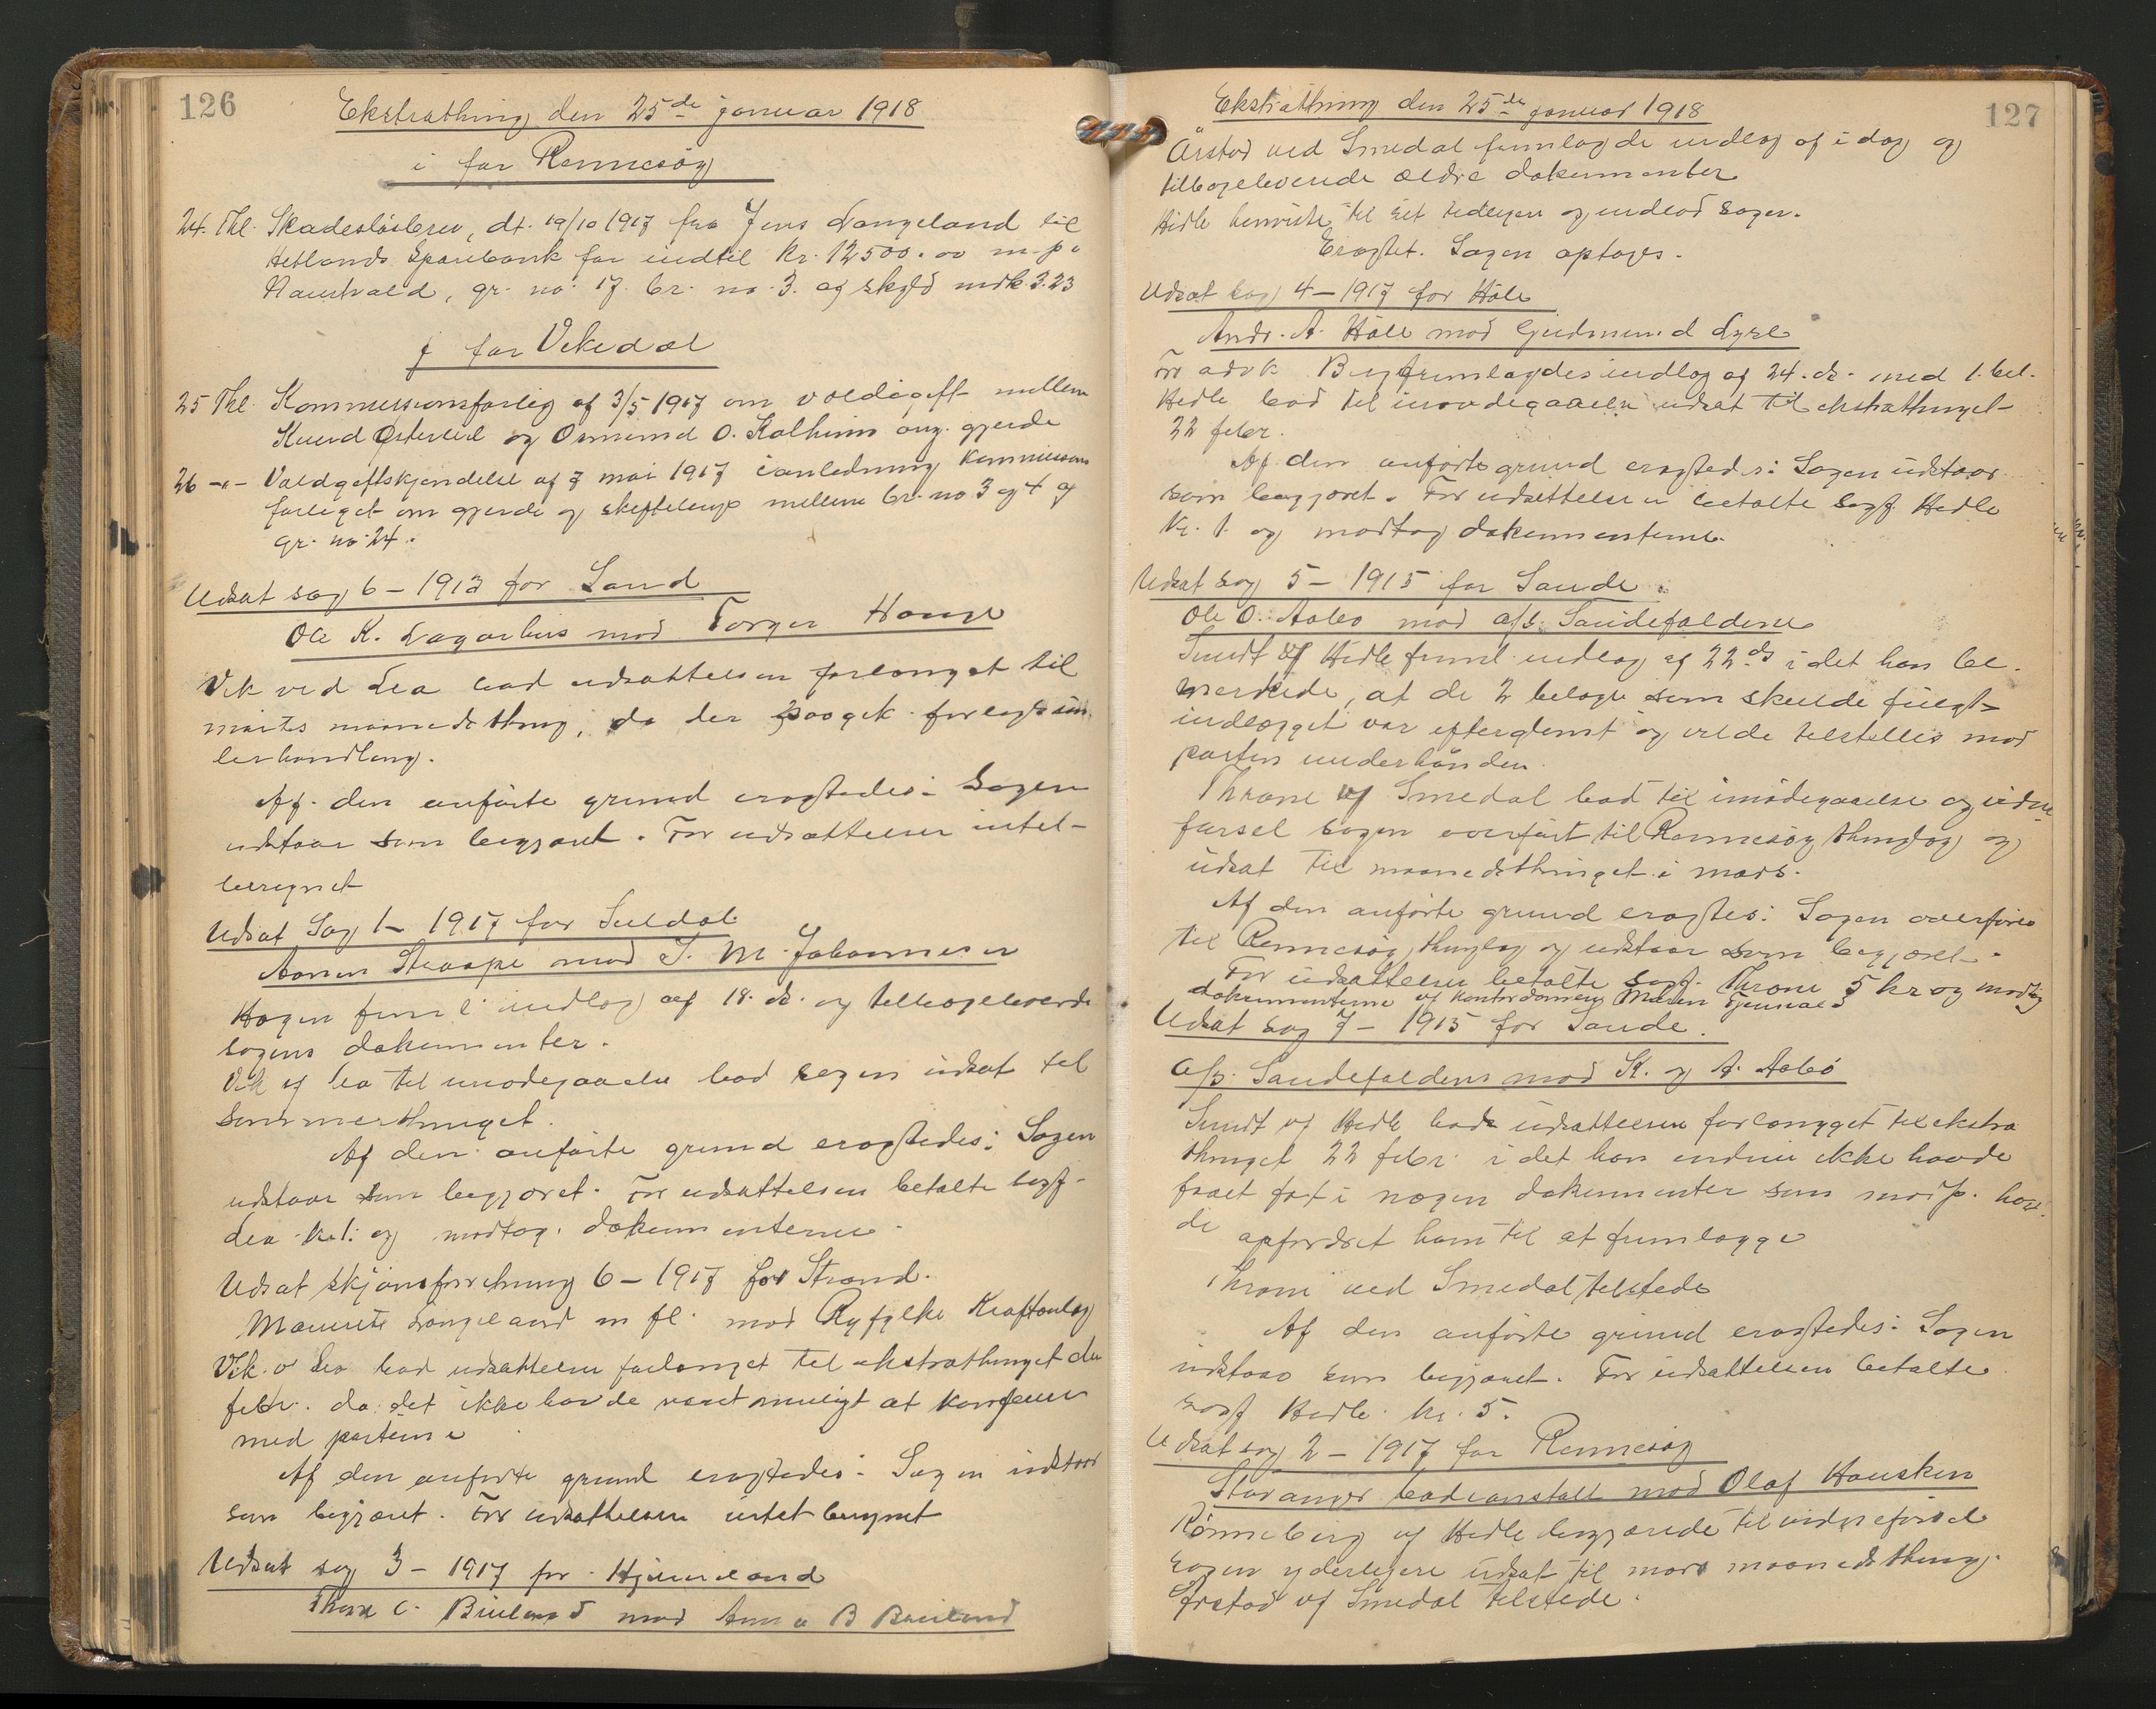 126
Ekstrathing den 25de januar 1918
i for Rennesøy
24. Thl. Skadesløsbrev, dt. 19/10 1917 fra Jens Langeland til
Hetlands Sparebank for indtil kr. 12500.00 m. p. i
gr. no. 17. br. no. 3. af skyld mrk 3.23
j for Vikedal
25 Thl. Kommissionsforlig af 3/5 1917 om voldgift mellem
Knud og Omund O. Kalheim ang. gjerde
26 -"- Voldgiftskjendelse af 7 mai 1917 i anledning Kommissions
forliget om gjerde og mellem br. no 3 og 4 af
gr. no 24.
Udsat sag 6 - 1913 for Sand
Ole K. Lagarhus mod Torger
Vik ved Lea bad udsættelsen forlænget til
marts maanedsthing, da der paagik forligsun-
derhandling.
Af den anførte grund eragtedes: Sagen
udstaar som begjæret. For udsættelsen intet
beregnet
Udsat Sag 1 - 1917 for Suldal
mod S. M. Johannesen
Hagen freml. indlæg af 18. ds. og tilbageleverede
sagens dokumenter.
Vik vf Lea til imødegaaelse bad sagen udsat til
sommerthinget.
Af den anførte grund eragtedes: Sagen
udstaar som begjæret. For udsættelsen betalte sagf.
Lea kr. 1. og modtog dokumenterne.
Udsat skjønsforretning 6 - 1917 for Strand.
Langeland m fl. mod Ryfylke Kraftanlæg
Vik v Lea bad udsættelsen forlænget til ekstrathinget den
febr. da det ikke havde været muligt at konferere
med parterne
Af den anførte grund eragtedes: Sagen udstaar
som begjæret. For udsættelsen intet beregnet
Udsat sag 3 - 1917 for Hjelmeland
C. mod Anna B
127
Ekstrathing den 25de januar 1918
Årstad ved Smedal fremlagde indlæg af i dag og
tilbageleverede ældre dokumenter
Hidle henviste til sit tidligere og indlod sagen.
Eragtet. Sagen optages.
Udsat sag 4 - 1917 for Høle
Andr. A. Høle mod Gudmund Lyse
For adv. fremlagdes indlæg af 24. ds. med 1 bil.
Hidle bad til imødegaaelse udsat til ekstrathinget
22 febr.
Af den anførte grund eragtedes: Sagen udstaar
som begjæret. For udsættelsen betalte sagf. Hidle
kr. 1. og modtog dokumenterne.
Udsat sag 5 - 1915 for Sande:
Ole O. Aabø mod a/s. Sandefaldene
Sundt vf Hidle freml. indlæg af 22 ds i det han be-
mærkede, at de 2 bilage som skulde fulgt
indlægget var efterglemt og vilde tilstilles mod
parten underhånden.
Throne vf Smedal bad til imødegaaelse og vidne
førsel sagen overført til Rennesøy thinglag og
udsat til maanedsthinget i mars.
Af den anførte grund eragtes: Sagen overføres
til Rennesøy thinglag og udstaar som begjæret.
For udsættelsen betalte sagf. Throne 5 kr og modtog
dokumenterne vf kontordame Maren
Udsat sag 7 - 1915 for Sande.
A/s. Sandefaldene mod K. og A. Aabø
Sundt vf Hidle bad udsættelsen forlænget til ekstra
thinget 22 febr. i det han endnu ikke havde
faaet fat i nogen dokumenter som modp. hav-
de opfordret ham til at fremlægge
Throne ved Smedal tilstede
Af den anførte grund eragtedes: Sagen
udstaar som begjæret. For udsættelsen betalte
sagf Hidle kr. 5.
Udsat sag 2 - 1917 for Rennesøy
Stavanger badeanstalt mod Olaf Hausken
Rønneberg vf Hidle begjærede til vidneførsel
sagen yderligere udsat til mars maanedsthing.
Ørstad vf Smedal tilstede.